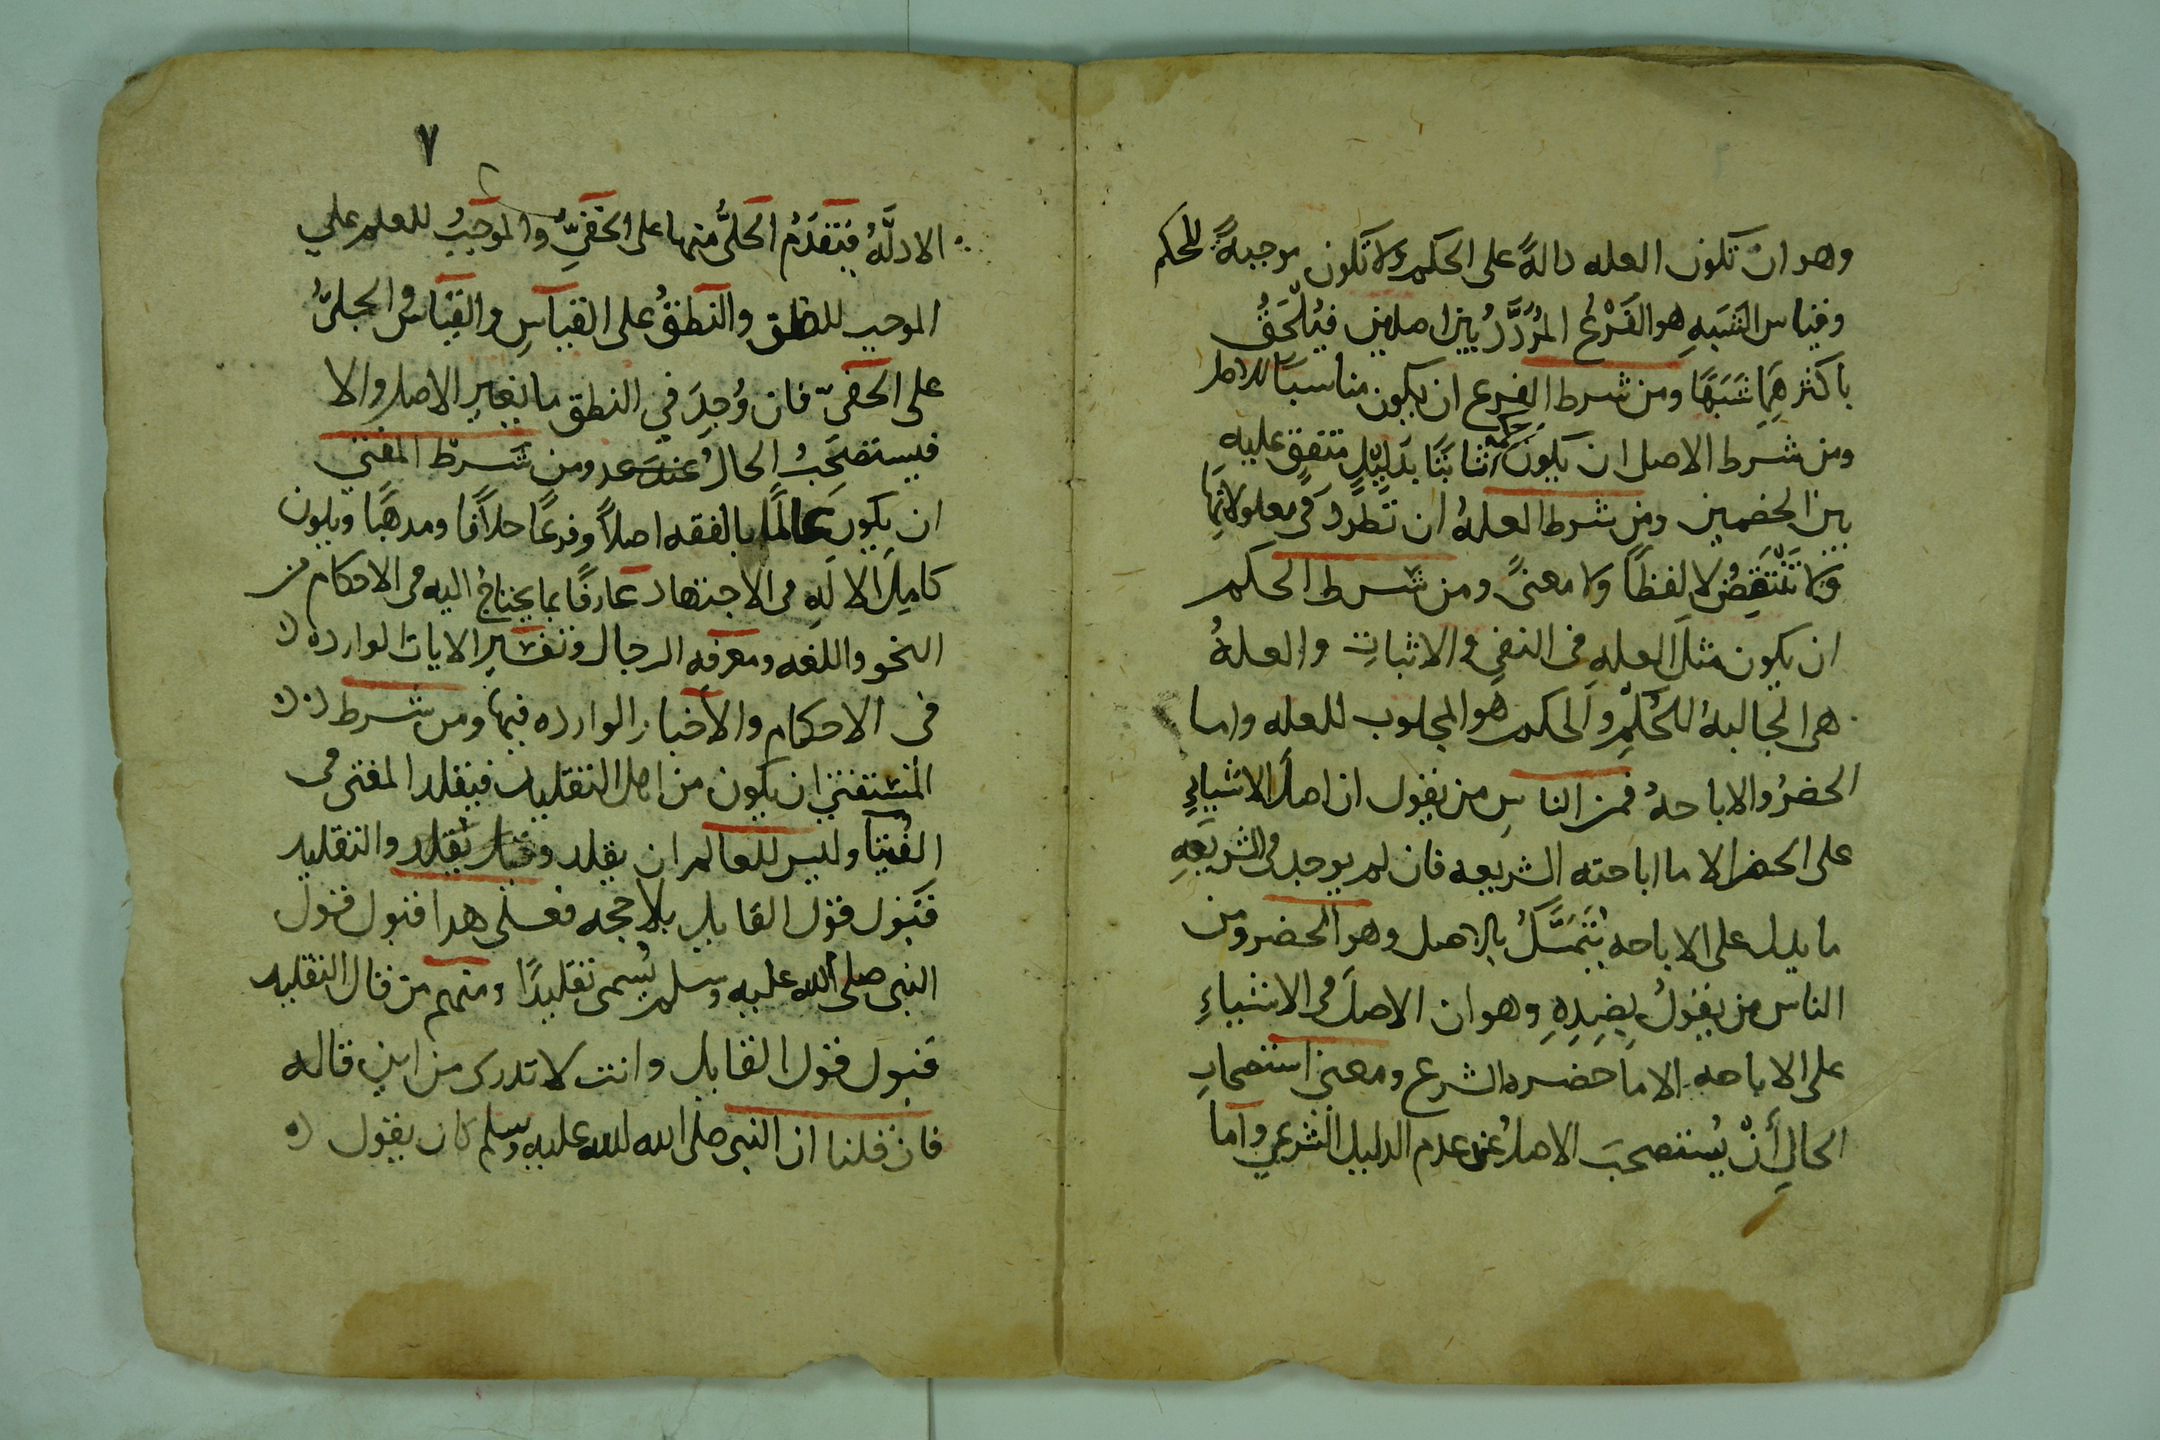 وهو ان تكون العله دالةً على الحكم ولا تكون موجبةً للحكم
وقياس الشبهِ هو الفَرْعُ المُرَدَّدُ بين اصلين فيُلْحَقُ
باكثرهِمَا شَبَهًا ومن شرط الفرع ان يكون مناسبًا للاصل
ومن شرط الاصل ان يكون حكمه ثابتًا بدَليلٍ متفقٍ عليه
بين الخصمين ومن شرط العلهُ ان تَطَّرِدَ في معلولاتِهَا
ولا تَنْتَقِضُ لا لفظًا ولا معنىً ومن شرط الحكم
ان يكون مثلَ العلهِ في النفي والاثباتِ والعلهُ
هي الجالبهُ للحُكمِ والحكم هو المجلوب للعله واما
الحضرُ والاباحهُ فمن الناسِ من يقول ان اصلَ الاشياءِ
على الحضر الا ما اباحته الشريعه فان لم يوجد في الشريعهِ
ما يدل على الاباحه يُتَمَسَّكُ بالاصل وهو الحضر ومن
الناس من يقولُ بضِدِهِ وهو ان الاصلَ في الاشياءِ
على الاباحه الا ما حضره الشرع ومعنى استصحابِ
الحالِ أنْ يُستصحبَ الاصلُ عن عدم الدليل الشرعي واما
٧
الادلَّهُ فيَتقدَمُ الجليُّ منها على الخفيِّ والموجبُ للعلم على
الموجب للظن والنطقُ على القياسِ والقياسُ الجليُّ
على الخفيّ فان وُجِدَ في النطق ما يغير الاصل والا
فيستصحَبُ الحالُ ومن شرط المفتي
ان يكون عالمًا بالفقه اصلاً وفرعًا خلافًا ومدهبًا ويكون
كامِلَ الالهِ في الاجتهاد عارفًا بما يحتاجُ اليه في الاحكام من
النحو واللغه ومعرفه الرجال وتفسير الايات الوارده
في الاحكام والأخبار الوارده فيها ومن شرط
المُستفتي ان يكون من اهل التقليد فيقلد المفتي في
الفُتيَا وليس للعالم ان يقلد وقيل يُقلد والتقليد
قَبُول قوْل القايل بلا حجه فعلى هدا قبول قول
النبي صلى الله عليه وسلم يُسمى تقليدًا ومنهم من قال التقليد
قبول قول القايل وانت لا تدري من اين قاله
فان قلنا ان النبي صلى الله عليه وسلم كان يقول